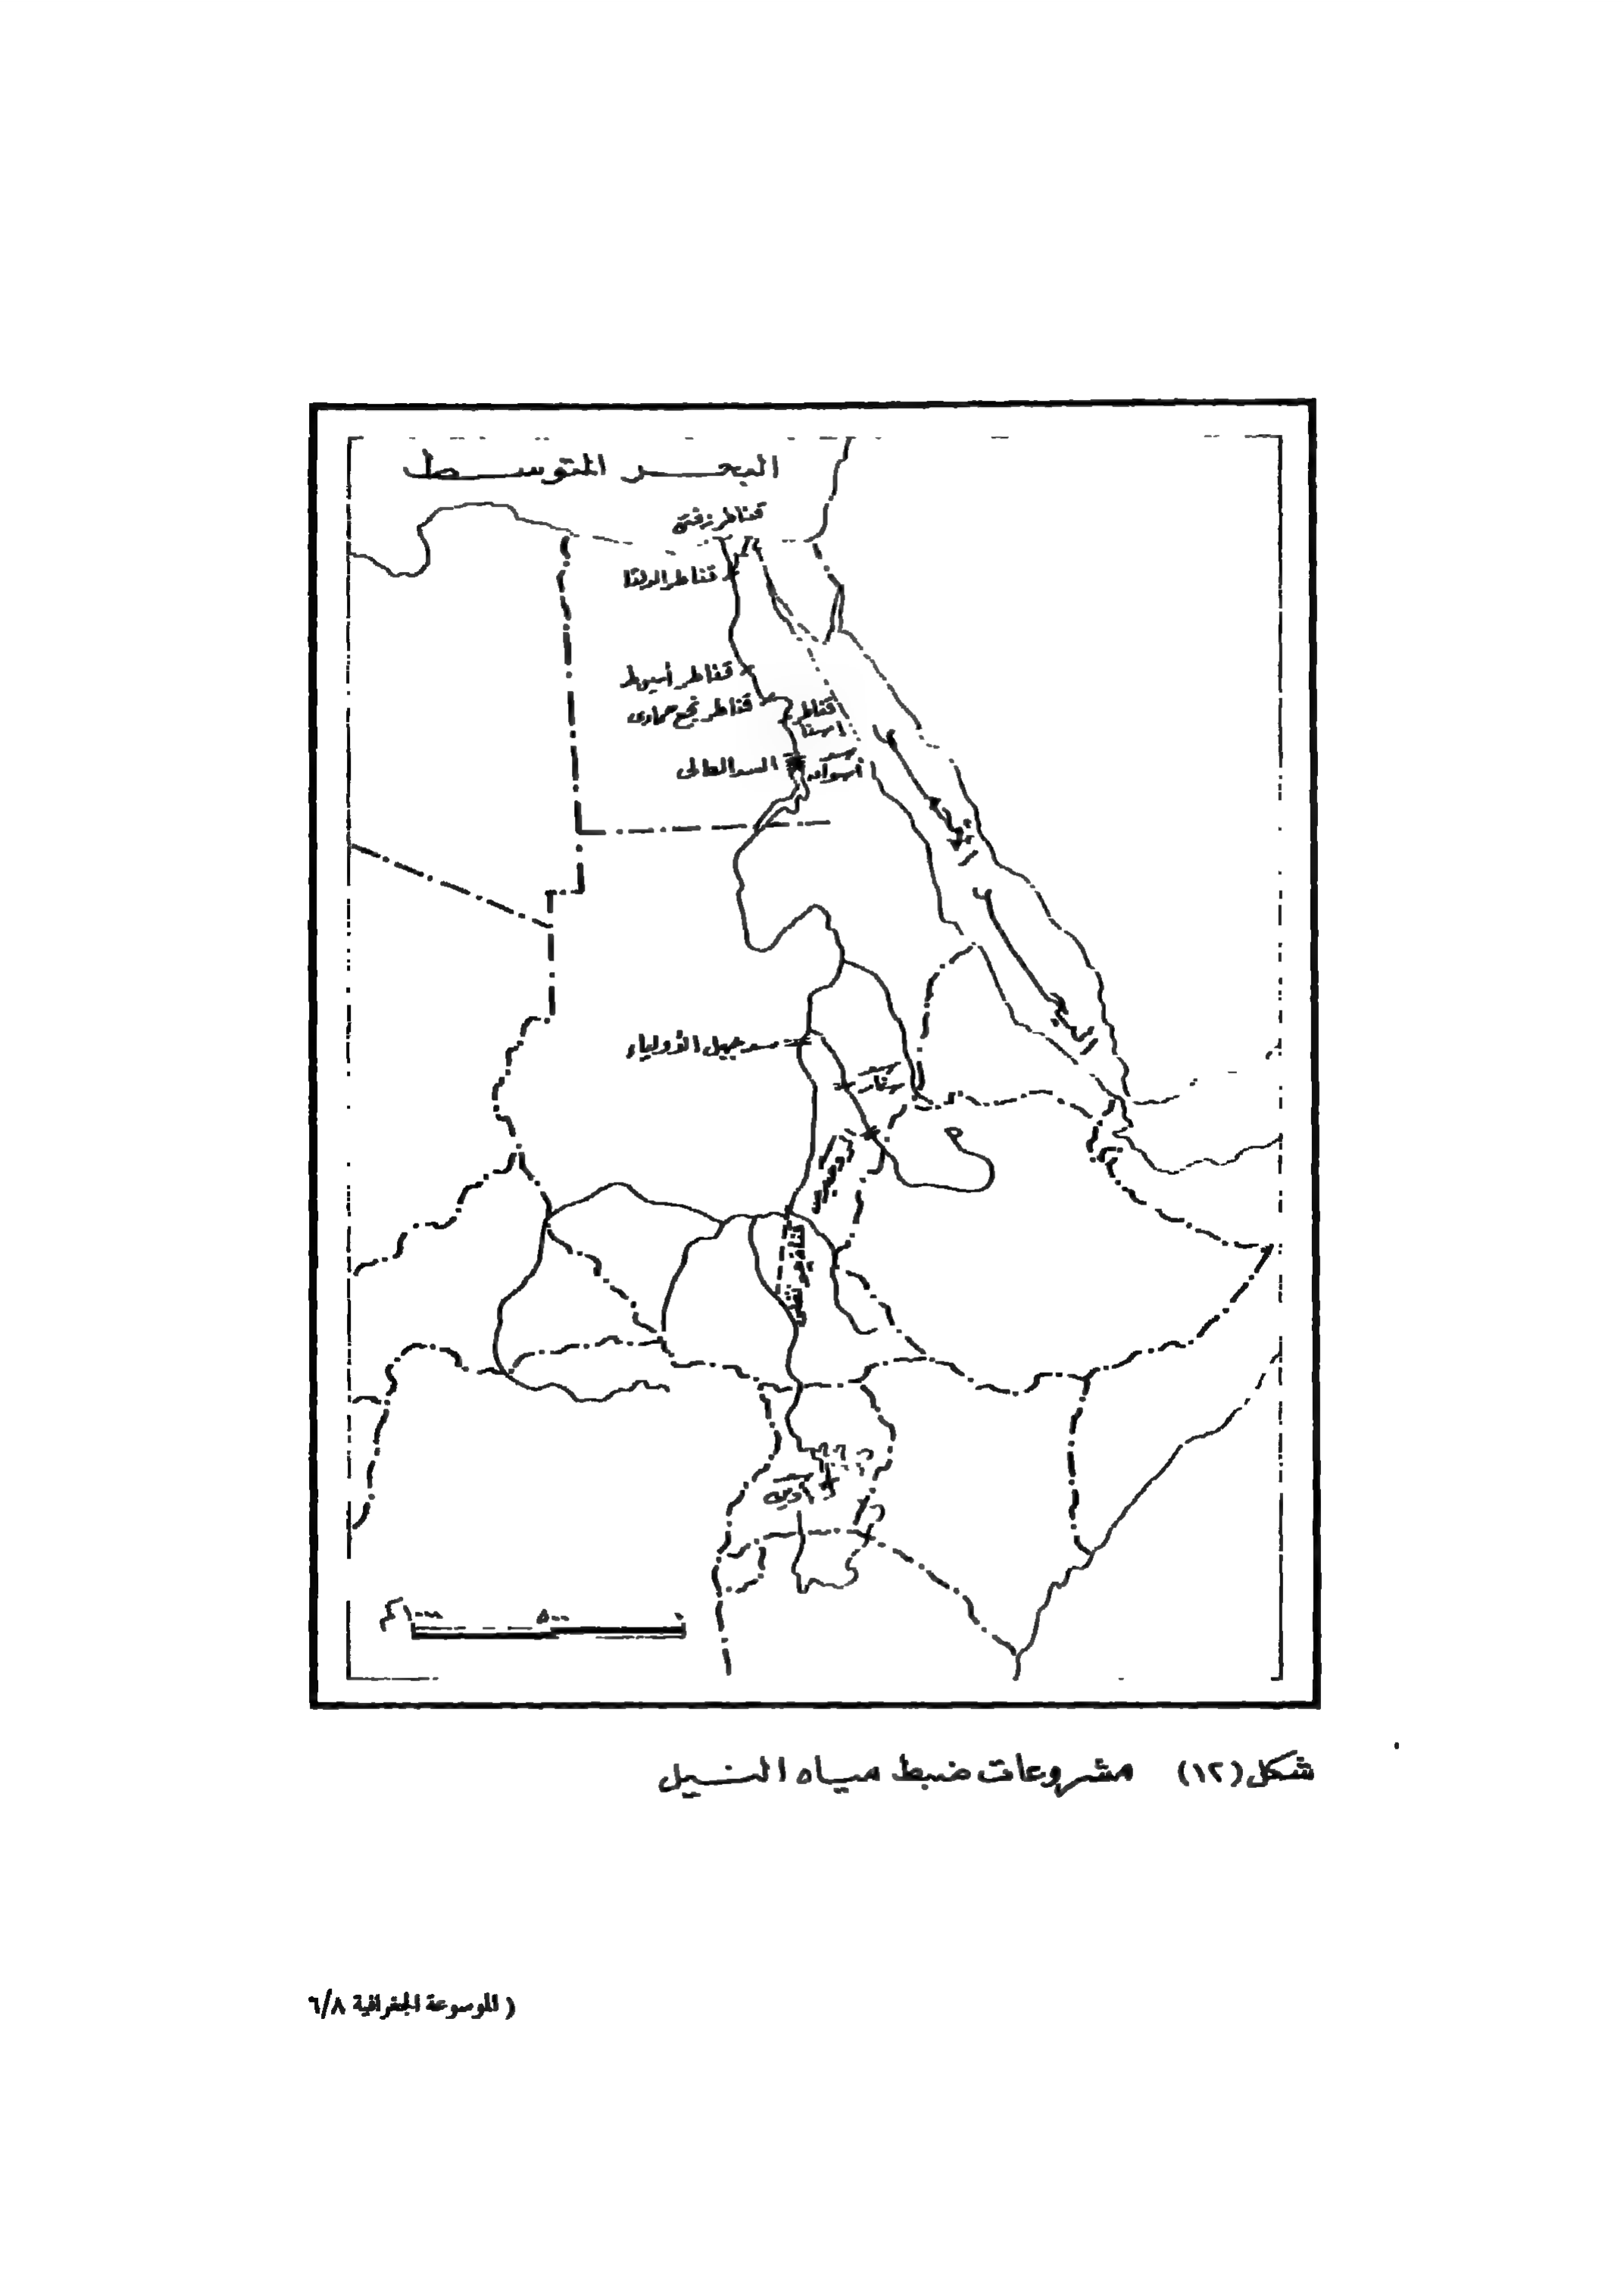 البحر المتوسط
قناطر زفتى
قناطر الدلتا
قناطر أسيوط
قناطر نجع حمادى
قناطر
اسنا
السد العالى
أسوان
سد جبل الأولياء
سنار
أوين
٠ ٥٠٠ ١٠٠٠ كم
شكل (١٢) مشروعات ضبط مياه النيل
( الموسوعة الجغرافية ٦/٨